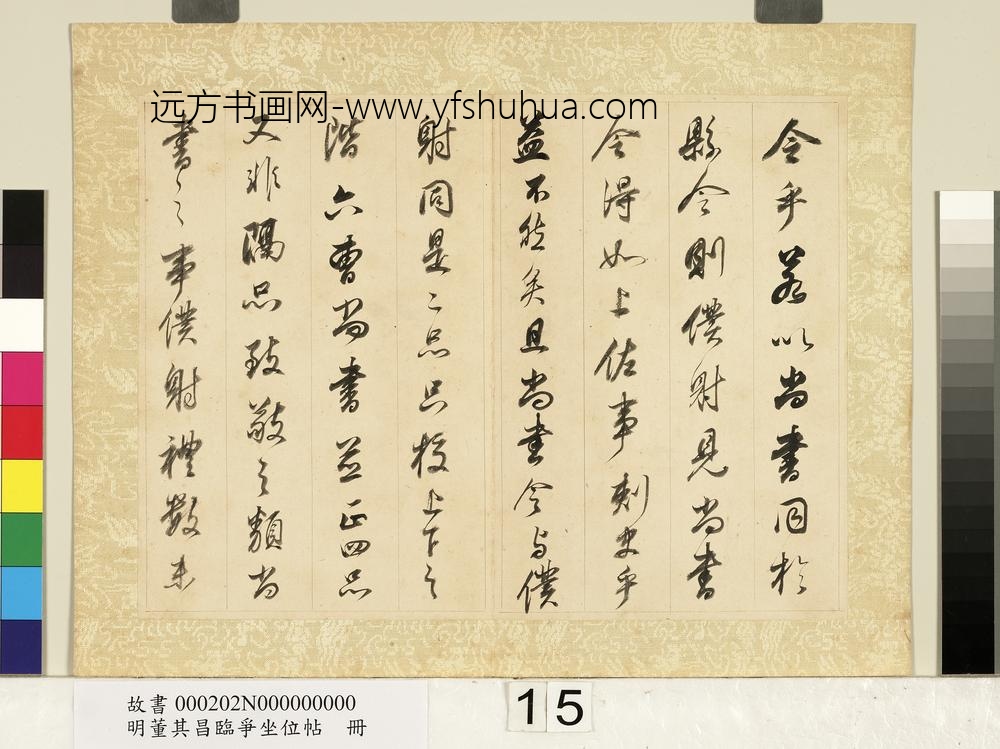 远方书画网-www.yfshuhua.com
令乎若以尚書同於
縣令則僕射見尚書
令得如上佐事刺史乎
益不然矣且尚書令与僕
射同是二品只挍上下之
階六曹尚書並正四品
又非隔品致敬之類尚
書之事僕射禮數未
故書 000202N000000000
明董其昌臨爭坐位帖 冊
15